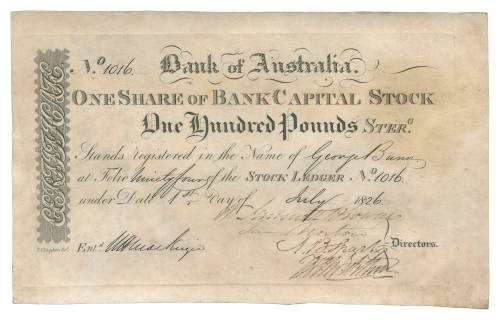 No. 1016. Bank of Australia.
ONE SHARE OF BANK CAPITAL STOCK
One Hundred Pounds STERG.
Stands registered in the Name of George Bunn
at Folio Ninety four of the STOCK LEDGER No. 1016.
under Date 1st Day of July 1826.
Entd.
Directors.